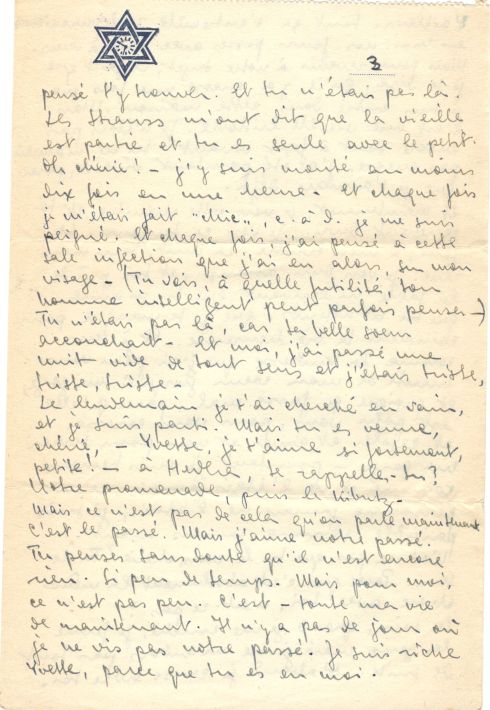 3
pensé t'y trouver. Et tu n'étais pas là.
Les Strauss m'ont dit que la vieille
est partie et tu es seule avec le petit.
Oh chérie! – j'y suis monté au moins
dix fois en une heure. Et chaque fois
je m'étais fait "chic", c. à d. je me suis
peigné. Et chaque fois, j'ai pensé à cette
sale infection que j'ai eu alors, sur mon
visage – (Tu vois, à quelle futilité, ton
homme intelligent peut parfois penser –)
Tu n'étais pas là, car ta belle soeur
accouchait. Et moi, j'ai passé une
nuit vide de tout sens et j'étais triste,
triste triste –
Le lendemain je t'ai cherché en vain,
et je suis parti. Mais tu es venue,
chérie, – Yvette, je t'aime si fortement,
petite! – à Hedera, te rappelles-tu?
Notre promenade, puis le kibutz –
Mais ce n'est pas de cela qu'on parle maintenant
C'est le passé. Mais j'aime notre passé.
Tu penses sans doute qu'il n'est encore
rien. Si peu de temps. Mais pour moi,
ce n'est pas peu. C'est – toute ma vie
de maintenant. Il n'y a pas de jour où
je ne vis pas notre passé. Je suis riche
Yvette, parce que tu es en moi.